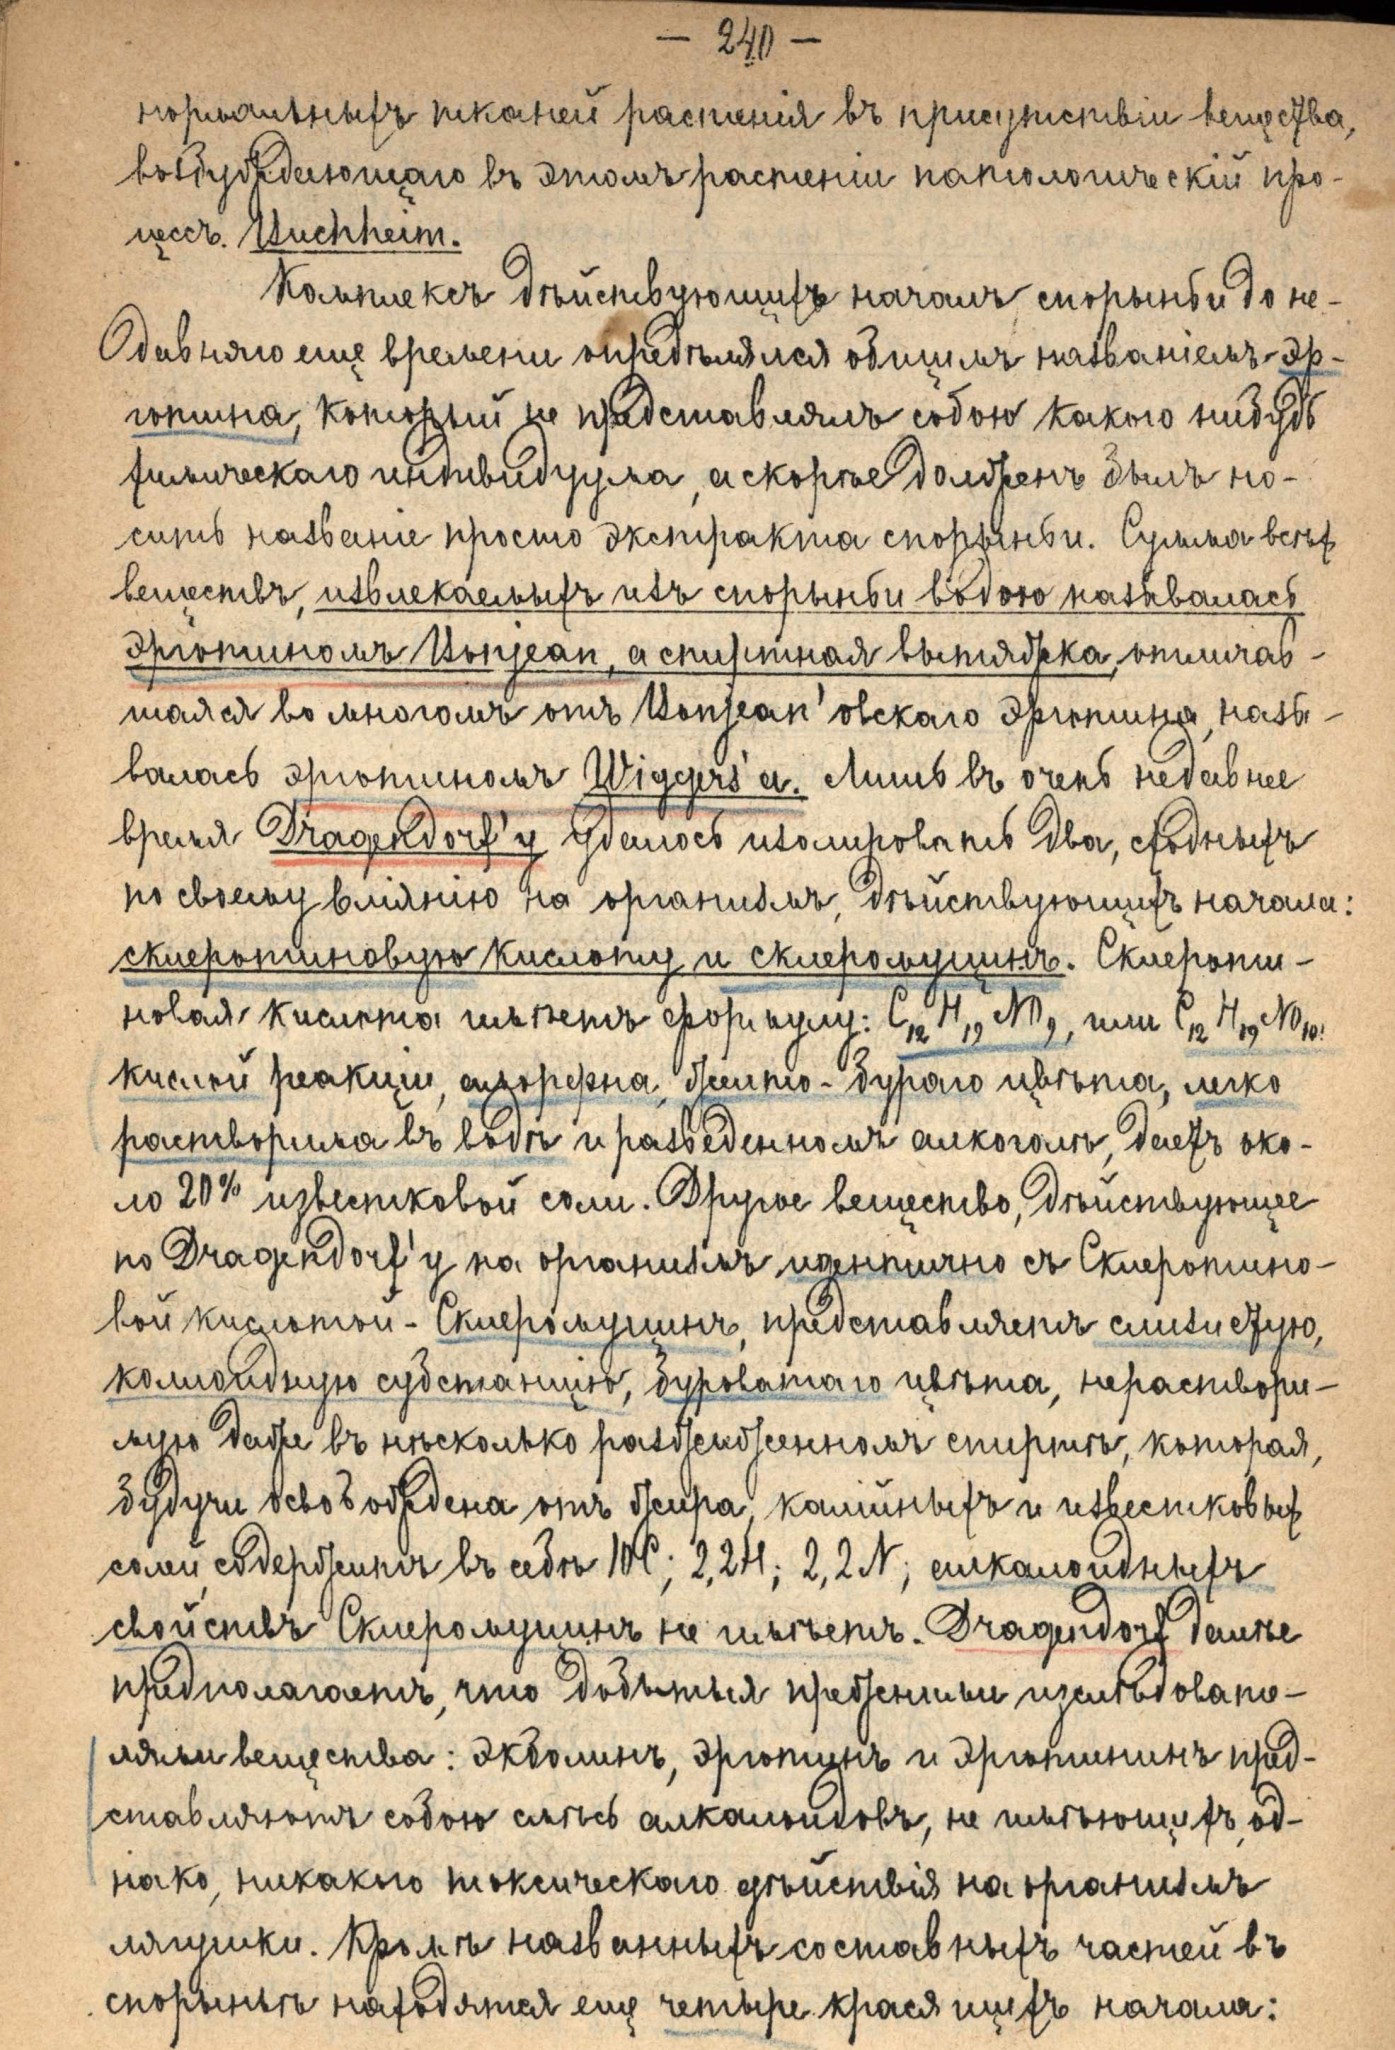 — 240 —
нормальныхъ тканей растенія въ присутствіи вещества,
возбуждающаго въ этомъ растеніи патологическій про-
цессъ. Buchheim.
Комплексъ дѣйствующихъ началъ спорыньи до не-
давняго еще времени опредѣлялся общимъ названіемъ эр-
готина, который не представлялъ собою какого нибудь
химическаго индивидуума, а скорѣе долженъ былъ но-
сить названіе просто экстракта спорыньи. Сумма всѣхъ
веществъ, извлекаемыхъ изъ спорыньи водою называлась
эрготиномъ Bonjean, а спиртная вытяжка, отличав-
шаяся во многомъ отъ Bonjean'овскаго эрготина, назы-
валась эрготиномъ Wiggers'а. Лишь въ очень недавнее
время Dragendorf'у удалось изолировать два, сходныхъ
по своему вліянію на организмъ, дѣйствующихъ начала:
склеротиновую кислоту и склеромуцинъ. Склероти-
новая кислота имѣетъ формулу: C12 H19 NO9, или C12 H19 NO10.
кислой реакціи, аморфна, желто-бураго цвѣта, легко
растворима въ водѣ и разведенномъ алкоголѣ, даетъ око-
ло 20% известковой соли. Другое вещество, дѣйствующее
по Dragendorf'у на организмъ идентично съ Склеротино-
вой кислотой - Склеромуцинъ, представляетъ слизистую,
коллоидную субстанцію, буроватаго цвѣта, нераствори-
мую даже въ нѣсколько разжиженномъ спиртѣ, которая,
будучи освобождена отъ жира, калійныхъ и известковых
солей, содержитъ въ себѣ 10C; 2,2H; 2,2N; алкалоидныхъ
свойствъ Склеромуцинъ не имѣетъ. Dragendorf далѣе
предполагаетъ, что добытыя прежними изслѣдовате-
лями вещества: экболинъ, эрготинъ и эрготининъ пред-
ставляютъ собою смѣсь алкалоидовъ, не имѣющихъ, од-
нако, никакого токсическаго дѣйствія на организмъ
лягушки. Кромѣ названныхъ составныхъ частей въ
спорыньѣ находятся еще четыре красящихъ начала: